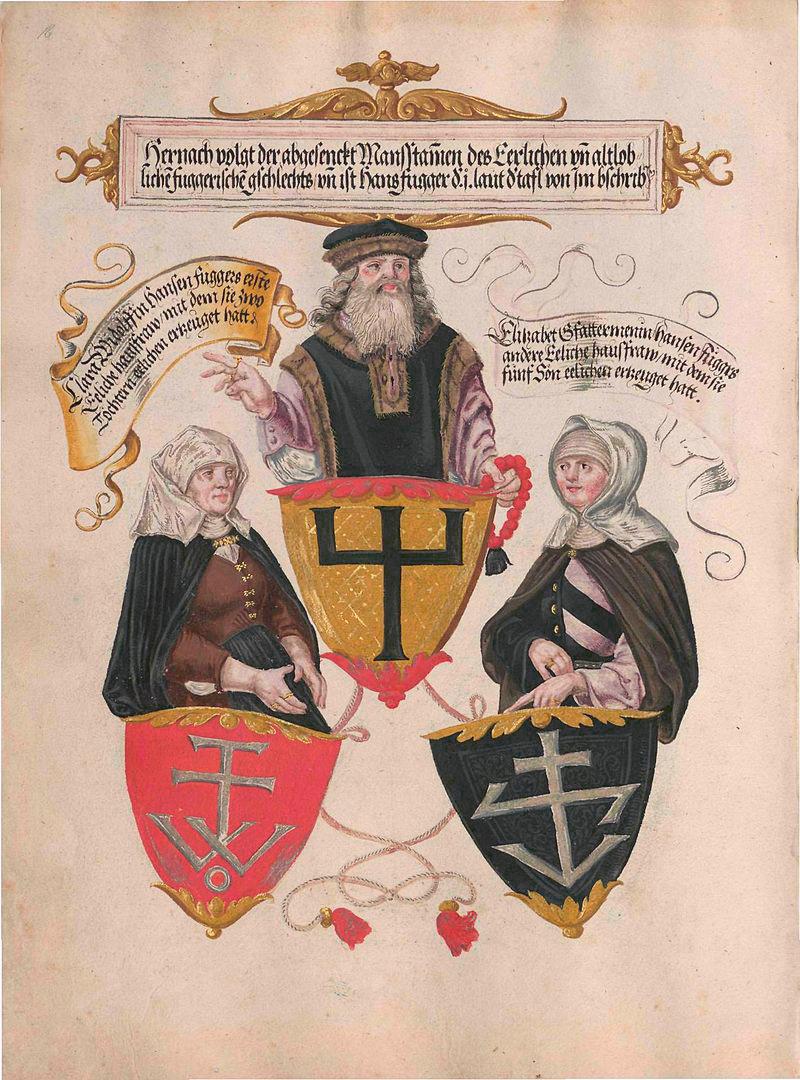 Hernach volgt der abgesenckt Mansstam̄en des Eerlichen vn̄ altlob-
lichē fuggerischē gschlechts, vn̄ ist Hans fugger d. j. laut d tafl von jm bschribē
Clara Widolffin Hansen fuggers erste
Eeliche hausfraw, mit dem sie zwo
Tochtern eelichen erzeuget hatt.
Elizabet Gfattermenin hansen fuggers
andere Eeliche hausfraw, mit dem sie
fünf Sön eelichen erzeuget hatt.